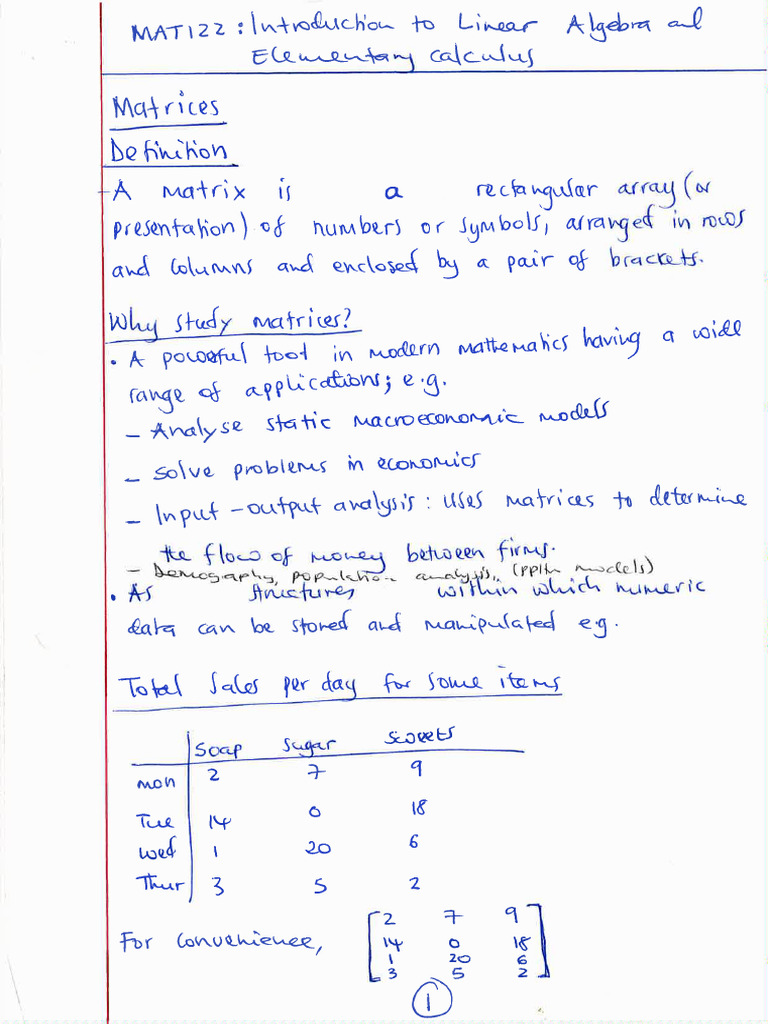 MAT122: Introduction to Linear Algebra and
Elementary calculus
Matrices
Definition
- A matrix is a rectangular array (or
presentation) of numbers or symbols, arranged in rows
and columns and enclosed by a pair of brackets.
Why study matrices?
• A powerful tool in modern mathematics having a wide
range of applications; e.g.
- Analyse static macroeconomic models
- solve problems in economics
- Input-output analysis: uses matrices to determine
the flow of money between firms.
- Demography, population analysis, (ppltn models)
• As structures within which numeric
data can be stored and manipulated e.g.
Total Sales per day for some items
Soap Sugar Sweets
Mon 2 7 9
Tue 14 0 18
Wed 1 20 6
Thur 3 5 2
For convenience, [2 7 9
14 0 18
1 20 6
3 5 2]
1